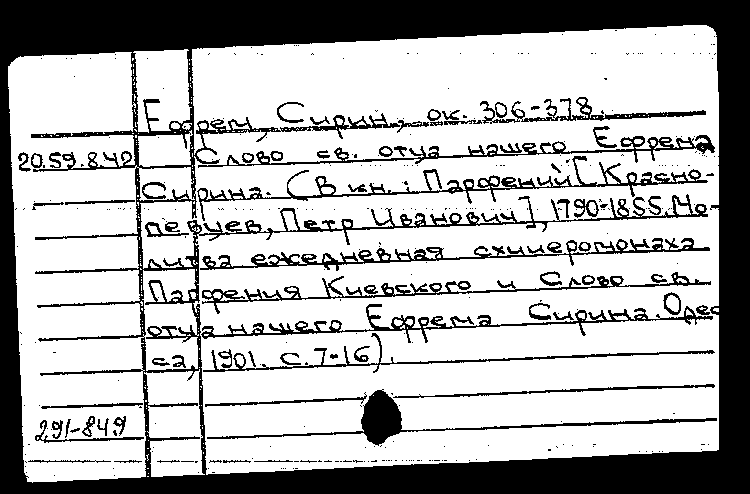 Ефрем, Сирин, ок. 306-378.
20.59.8.42 Слово св. отца нашего Ефрема
Сирина. (В кн.: Парфений [Красно-
певцев, Петр Иванович], 1790-1855. Мо-
литва ежедневная схииеромонаха
Парфения Киевского и Слово св.
отца нашего Ефрема Сирина. Одес
са, 1901. с. 7-16).
291-849